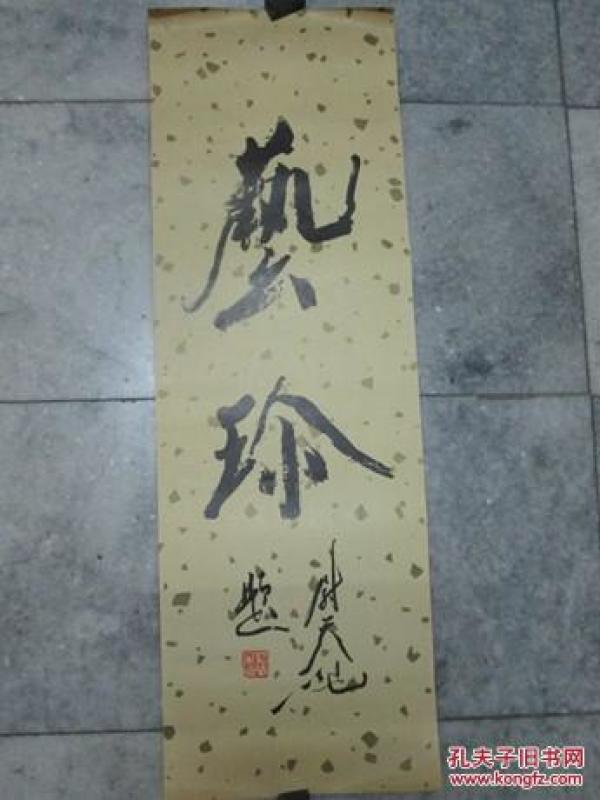 藝珍
尉天池
题
孔夫子旧书网
www.kongfz.com